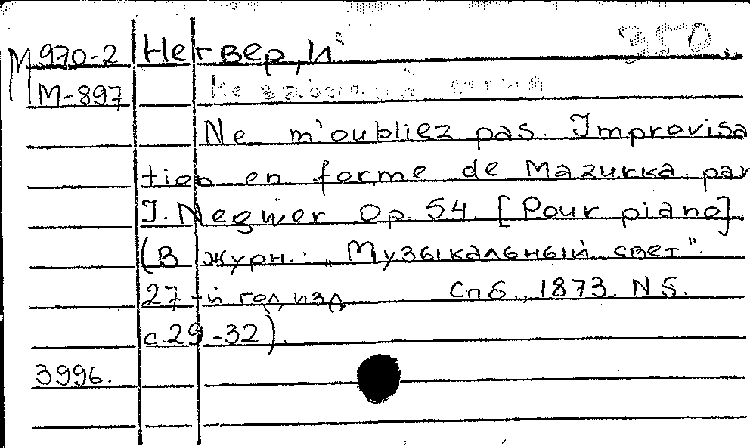 М 970-2 Негвер, И.
М-897
Ne m'oubliez pas. Improvisa
tion en forme de Mazurka par
J. Negwer Op. 54. [Pour piano].
(В журн.: „Музыкальный свет".
27-й год изд. Спб., 1873. N 5.
с. 29-32).
3996.